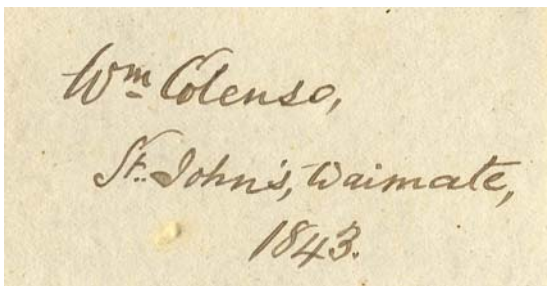 Wm Colenso,
St. John's, Waimate,
1843.